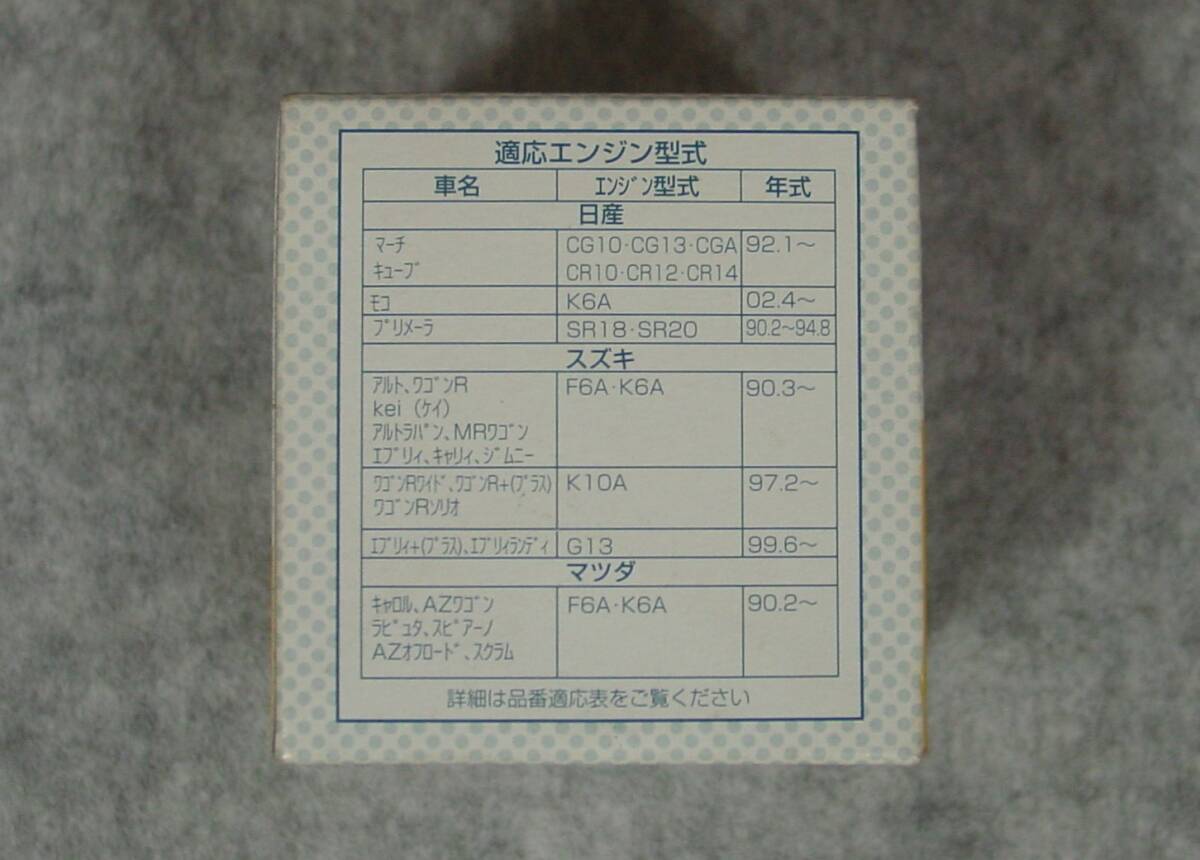 適応エンジン型式
車名 ｴﾝｼﾞﾝ型式 年式
日産
ﾏｰﾁ CG10･CG13･CGA 92.1～
ｷｭｰﾌﾞ CR10･CR12･CR14
ﾓｺ K6A 02.4～
ﾌﾟﾘﾒｰﾗ SR18･SR20 90.2～94.8
スズキ
ｱﾙﾄ､ﾜｺﾞﾝR F6A･K6A 90.3～
kei（ｹｲ）
ｱﾙﾄﾗﾊﾟﾝ､MRﾜｺﾞﾝ
ｴﾌﾞﾘｨ､ｷｬﾘｨ､ｼﾞﾑﾆｰ
ﾜｺﾞﾝRﾜｲﾄﾞ､ﾜｺﾞﾝR+(ﾌﾟﾗｽ) K10A 97.2～
ﾜｺﾞﾝRｿﾘｵ
ｴﾌﾞﾘｨ+(ﾌﾟﾗｽ)､ｴﾌﾞﾘｨﾗﾝﾃﾞｨ G13 99.6～
マツダ
ｷｬﾛﾙ､AZﾜｺﾞﾝ F6A･K6A 90.2～
ﾗﾋﾟｭﾀ､ｽﾋﾟｱｰﾉ
AZｵﾌﾛｰﾄﾞ､ｽｸﾗﾑ
詳細は品番適応表をご覧ください